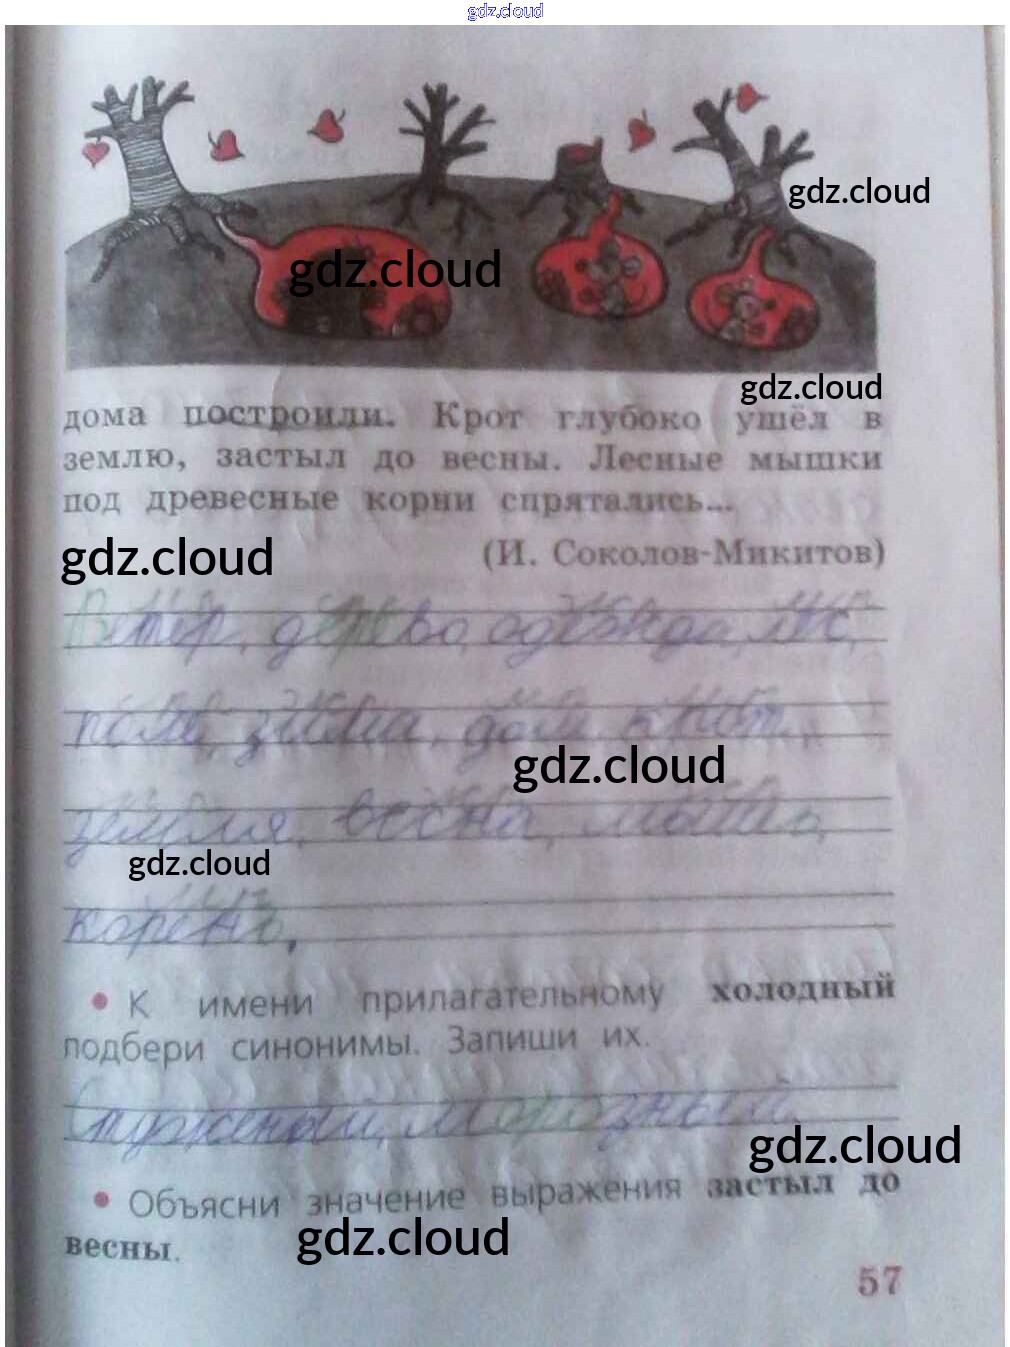 gdz.cloud
gdz.cloud
gdz.cloud
gdz.cloud
дома построили. Крот глубоко ушёл в
землю, застыл до весны. Лесные мышки
под древесные корни спрятались...
(И. Соколов-Микитов)
gdz.cloud
Ветер, дерево, одежда, лес,
поле, зима, дом, крот,
gdz.cloud
земля, весна, мышь,
gdz.cloud
корень,
• К имени прилагательному холодный
подбери синонимы. Запиши их.
Стужёный, морозный.
gdz.cloud
• Объясни значение выражения застыл до
весны.
gdz.cloud
57